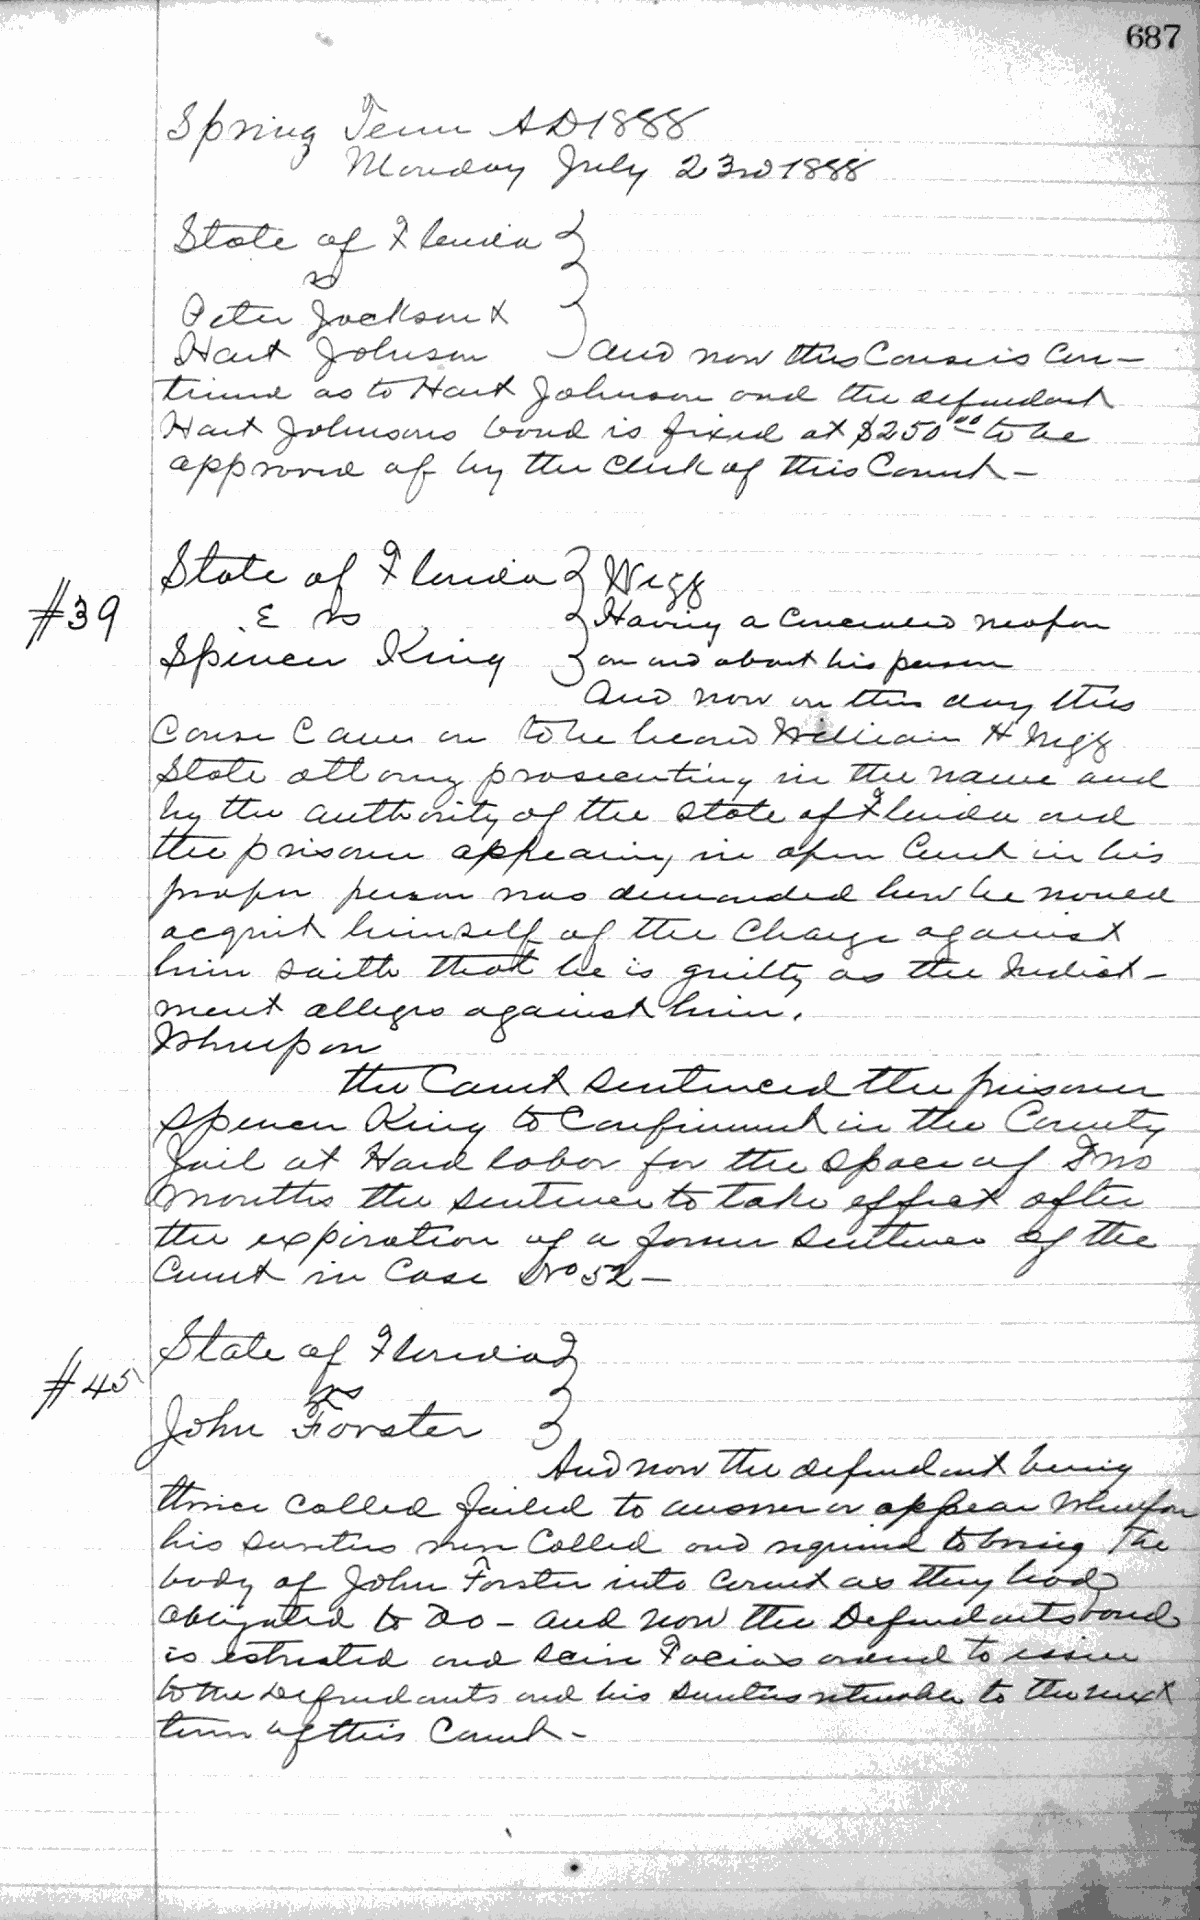 687
Spring Term AD 1888
Monday July 23rd 1888
State of Florida
vs
Peter Jackson &
Hart Johnson And now this Cause is Con-
tinued as to Hart Johnson and the defendant
Hart Johnsons bond is fixed at $250.00 to be
approved of by the Clerk of this Court -
State of Florida Wigg
#39 vs Having a Concealed weapon
Spencer King on and about his person
And now on this day this
Cause Came on to be heard William H Wigg
State attorney prosecuting in the name and
by the authority of the State of Florida and
the prisoner appearing in open Court in his
proper person was demanded how he would
acquit himself of the Charge against
him saith that he is guilty as the Indict-
ment alleges against him.
Whereupon
the Court sentenced the prisoner
Spencer King to Confinement in the County
Jail at Hard labor for the space of Two
months the sentence to take effect after
the expiration of a former sentence of the
Court in Case No 52 -
State of Florida
#45 vs
John Forster
And now the defendant being
thrice called failed to answer or appear Whereupon
his sureties were Called and required to bring the
body of John Forster into Court as they had
obligated to do - and now the Defendants bond
is estreated and Scire Facias ordered to issue
to the Defendants and his sureties returnable to the next
term of this Court -